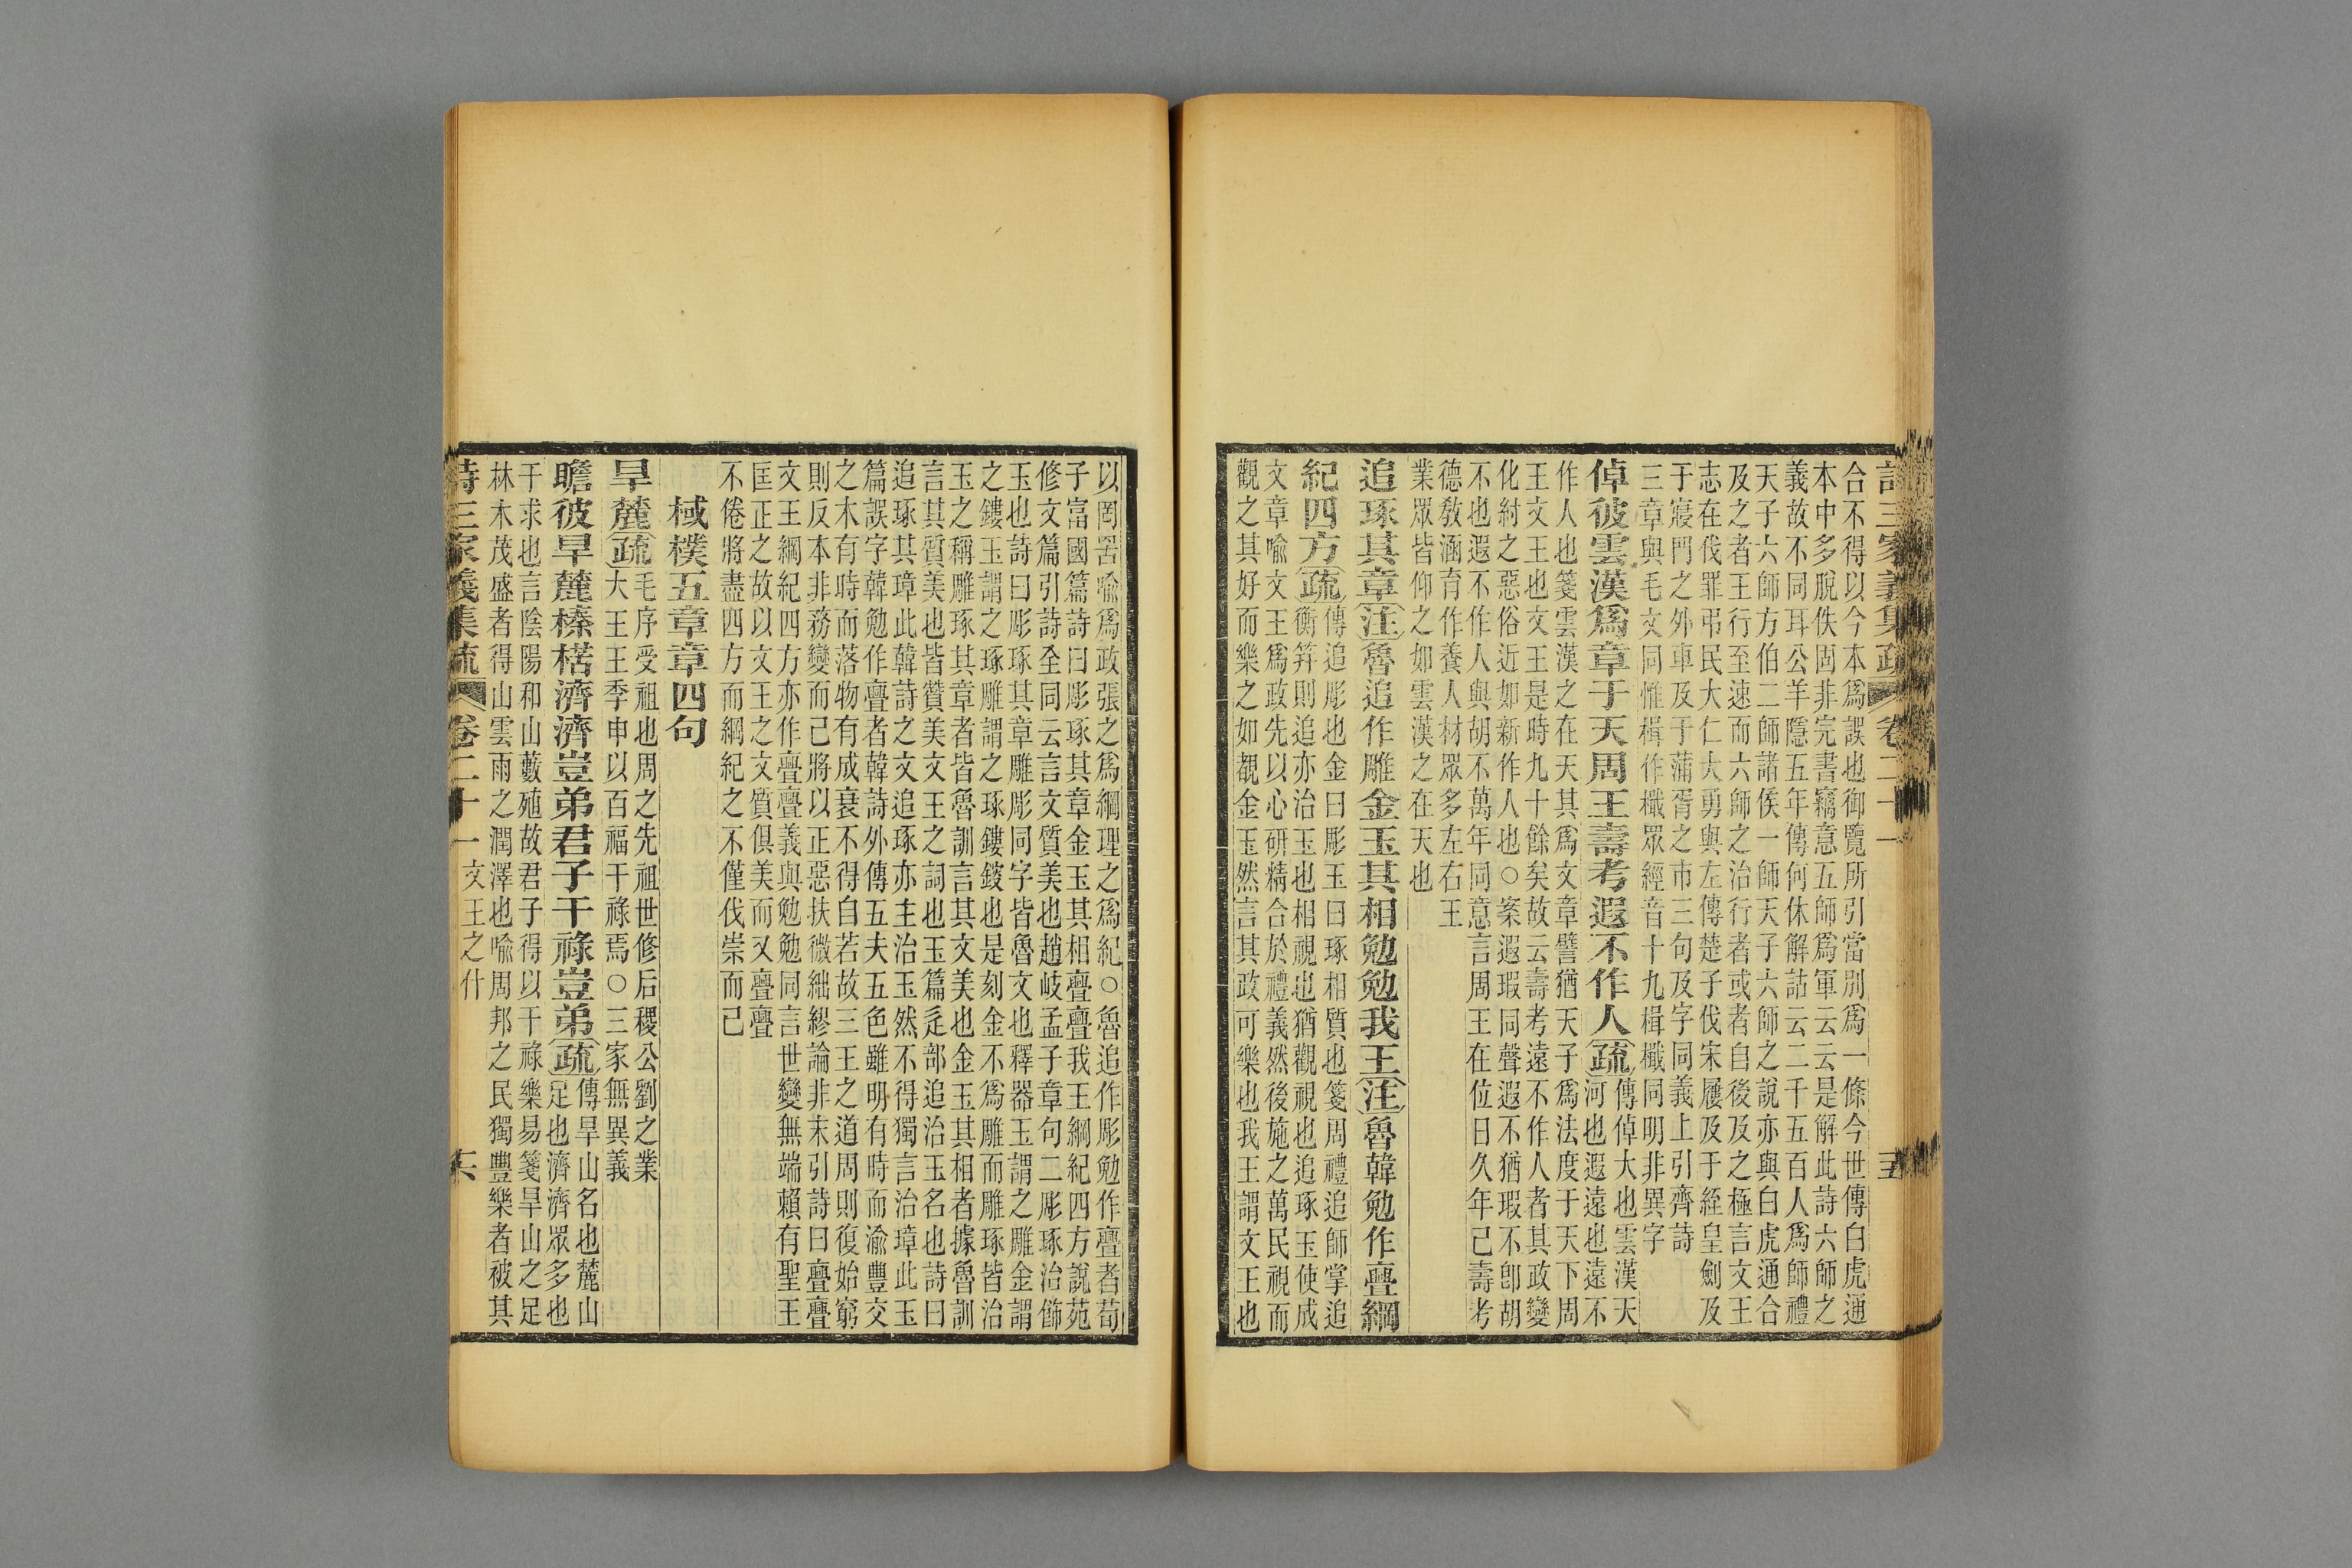 詩三家義集疏 卷二十一 十五
合不得以今本爲誤也御覽所引當別爲一條今世傳白虎通
本中多脫佚固非完書竊意五師爲軍云云是解此詩六師之
義故不同耳公羊隱五年傳何休解詁云二千五百人爲師禮
天子六師方伯二師諸侯一師天子六師之說亦與白虎通合
及之者王行至速而六師之治行者或者自後及之極言文王
志在伐罪弔民大仁大勇與左傳楚子伐宋屨及于絰皇劍及
于寢門之外車及于蒲胥之市三句及字同義上引齊詩
三章與毛文同惟楫作檝眾經音十九楫檝同明非異字
倬彼雲漢爲章于天周王壽考遐不作人疏傳倬大也雲漢天
河也遐遠也遠不
作人也箋雲漢之在天其爲文章譬猶天子爲法度于天下周
王文王也文王是時九十餘矣故云壽考遠不作人者其政變
化紂之惡俗近如新作人也○案遐瑕同聲遐不猶瑕不卽胡
不也遐不作人與胡不萬年同意言周王在位日久年已壽考
德教涵育作養人材眾多左右王
業眾皆仰之如雲漢之在天也
追琢其章注魯追作雕金玉其相勉勉我王注魯韓勉作亹綱
紀四方疏傳追彫也金曰彫玉曰琢相質也箋周禮追師掌追
衡笄則追亦治玉也相視也猶觀視也追琢玉使成
文章喻文王爲政先以心研精合於禮義然後施之萬民視而
觀之其好而樂之如覩金玉然言其政可樂也我王謂文王也
以罔罟喻爲政張之爲綱理之爲紀○魯追作彫勉作亹者荀
子富國篇詩曰彫琢其章金玉其相亹亹我王綱紀四方說苑
修文篇引詩全同云言文質美也趙岐孟子章句二彫琢治飾
玉也詩曰彫琢其章雕彫同字皆魯文也釋器玉謂之雕金謂
之鏤玉謂之琢雕謂之琢鏤鎪也是刻金不爲雕而雕琢皆治
玉之稱雕琢其章者皆魯訓言其文美也金玉其相者據魯訓
言其質美也皆贊美文王之詞也玉篇辵部追治玉名也詩曰
追琢其璋此韓詩之文追琢亦主治玉然不得獨言治璋此玉
篇誤字韓勉作亹者韓詩外傳五夫五色雖明有時而渝豐交
之木有時而落物有成衰不得自若故三王之道周則復始窮
則反本非務變而已將以正惡扶微絀繆論非末引詩曰亹亹
文王綱紀四方亦作亹亹義與勉勉同言世變無端賴有聖王
匡正之故以文王之文質俱美而又亹亹
不倦將盡四方而綱紀之不僅伐崇而已
棫樸五章章四句
旱麓疏毛序受祖也周之先祖世修后稷公劉之業
大王王季申以百福干祿焉○三家無異義
瞻彼旱麓榛楛濟濟豈弟君子干祿豈弟疏傳旱山名也麓山
足也濟濟眾多也
干求也言陰陽和山藪殖故君子得以干祿樂易箋旱山之足
林木茂盛者得山雲雨之潤澤也喻周邦之民獨豐樂者被其
詩三家義集疏 卷二十一 文王之什 十六